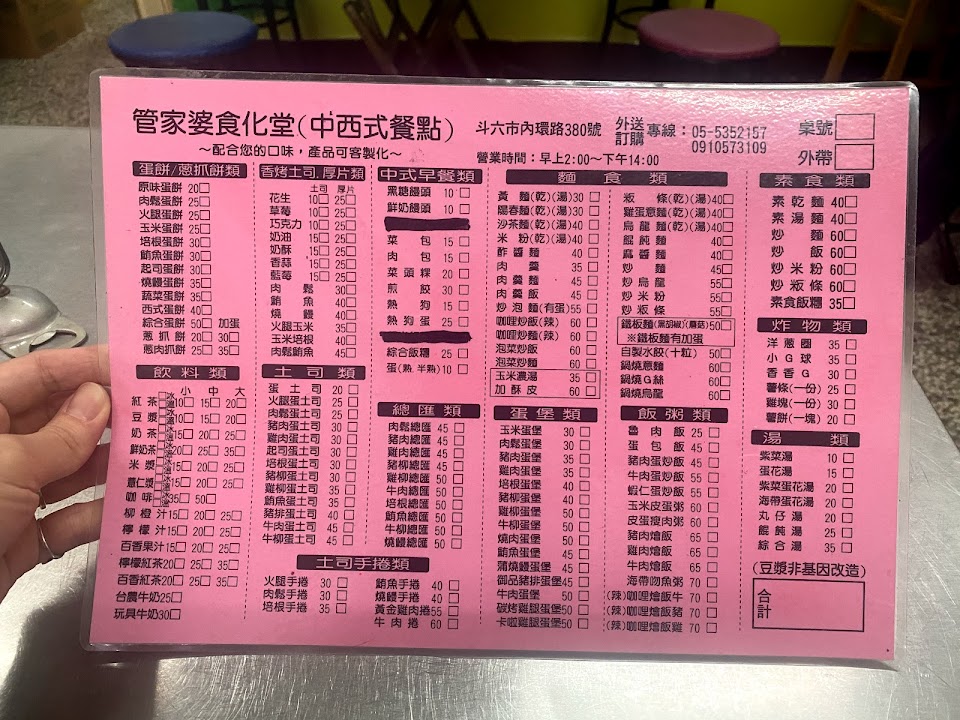 管家婆食化堂(中西式餐點)
～配合您的口味，產品可客製化～
斗六市內環路380號
外送訂購 專線：05-5352157
0910573109
營業時間：早上2:00～下午14:00
桌號
外帶
蛋餅/蔥抓餅類
原味蛋餅 20
肉鬆蛋餅 25
火腿蛋餅 25
玉米蛋餅 25
培根蛋餅 30
鮪魚蛋餅 30
起司蛋餅 30
燒鰻蛋餅 35
蔬菜蛋餅 35
西式蛋餅 40
綜合蛋餅 50 加蛋
蔥抓餅 20 30
蔥肉抓餅 25 35
飲料類
小 中 大
紅茶 10 15 20
豆漿 10 15 20
奶茶 15 20 25
鮮奶茶 20 25 35
米漿 15 20 25
薏仁漿 15 20 25
咖啡 35 50
柳橙汁 15 20 25
檸檬汁 15 20 25
百香果汁 15 20 25
檸檬紅茶 20 25 35
百香紅茶 20 25 35
台農牛奶 25
玩具牛奶 30
香烤土司.厚片類
土司 厚片
花生 10 25
草莓 10 25
巧克力 10 25
奶油 15 25
奶酥 15 25
香蒜 15 25
藍莓 15 25
肉鬆 30
鮪魚 40
燒鰻 40
火腿玉米 35
玉米培根 40
肉鬆鮪魚 45
土司類
蛋土司 20
火腿蛋土司 25
肉鬆蛋土司 25
豬肉蛋土司 30
雞肉蛋土司 30
起司蛋土司 30
培根蛋土司 30
豬柳蛋土司 30
雞柳蛋土司 35
鮪魚蛋土司 35
豬排蛋土司 40
牛肉蛋土司 45
牛柳蛋土司 45
土司手捲類
火腿手捲 30
肉鬆手捲 30
培根手捲 35
鮪魚手捲 40
燒鰻手捲 40
黃金雞肉捲 55
牛肉捲 60
中式早餐類
黑糖饅頭 10
鮮奶饅頭 10
菜包 15
肉包 15
菜頭粿 20
煎餃 30
熱狗 15
熱狗蛋 25
綜合飯糰 25
蛋(熟.半熟) 10
總匯類
肉鬆總匯 45
豬肉總匯 45
雞肉總匯 45
豬柳總匯 45
雞柳總匯 45
牛肉總匯 50
培根總匯 50
鮪魚總匯 50
牛柳總匯 50
燒鰻總匯 50
麵食類
黃麵(乾)(湯) 30
陽春麵(乾)(湯) 30
沙茶麵(乾)(湯) 40
米粉(乾)(湯) 40
酢醬麵 40
肉羹 35
肉羹麵 45
肉羹飯 45
炒泡麵(有蛋) 55
咖哩炒飯(辣) 60
咖哩炒麵(辣) 60
泡菜炒飯 60
泡菜炒麵 60
玉米濃湯 35
加酥皮 60
粄條(乾)(湯) 40
雞蛋意麵(乾)(湯) 40
烏龍麵(乾)(湯) 40
餛飩麵 40
麻醬麵 40
炒麵 45
炒烏龍 55
炒米粉 55
炒粄條 55
鐵板麵(黑胡椒)(蘑菇) 50
※鐵板麵有加蛋
自製水餃(十粒) 50
鍋燒意麵 60
鍋燒G絲 60
鍋燒烏龍 60
蛋堡類
玉米蛋堡 30
肉鬆蛋堡 30
豬肉蛋堡 35
雞肉蛋堡 35
培根蛋堡 35
豬柳蛋堡 40
雞柳蛋堡 40
牛柳蛋堡 50
燒肉蛋堡 45
鮪魚蛋堡 45
蒲燒鰻蛋堡 45
御品豬排蛋堡 45
牛肉蛋堡 50
碳烤雞腿蛋堡 50
卡啦雞腿蛋堡 50
飯粥類
魯肉飯 25
蛋包飯 45
豬肉蛋炒飯 45
牛肉蛋炒飯 55
蝦仁蛋炒飯 55
玉米皮蛋粥 60
皮蛋瘦肉粥 60
豬肉燴飯 65
雞肉燴飯 65
牛肉燴飯 65
海帶吻魚粥 70
(辣)咖哩燴飯牛 70
(辣)咖哩燴飯豬 70
(辣)咖哩燴飯雞 70
素食類
素乾麵 40
素湯麵 40
炒麵 60
炒飯 60
炒米粉 60
炒粄條 60
素食飯糰 35
炸物類
洋蔥圈 35
小G球 35
香香G 30
薯條(一份) 25
雞塊(一份) 30
薯餅(一塊) 20
湯類
紫菜湯 10
蛋花湯 15
紫菜蛋花湯 20
海帶蛋花湯 20
丸仔湯 20
餛飩湯 25
綜合湯 35
(豆漿非基因改造)
合計